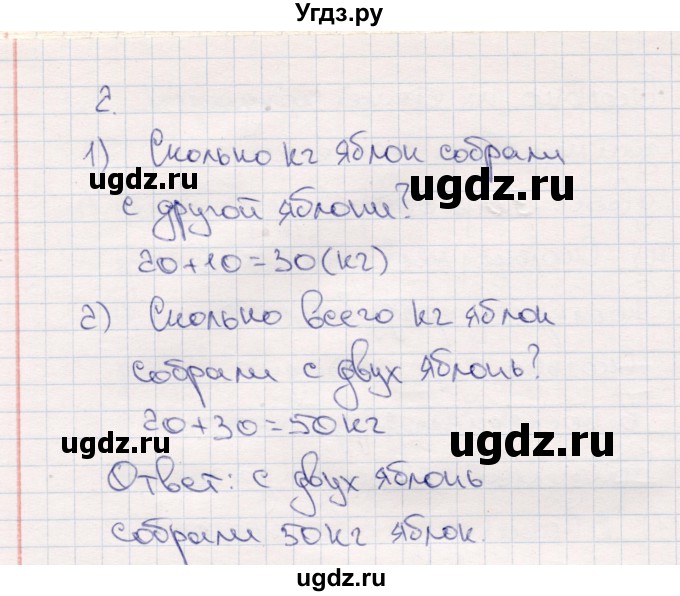 Угдз.ру
2.
1) Сколько кг яблок собрали
ugdz.ru
ugdz.ru
с другой яблони?
20+10=30(кг)
2) Сколько всего кг яблок
собрали с двух яблонь?
20+30=50кг
ugdz.ru
ugdz.ru
Ответ: с двух яблонь
собрали 50кг яблок.
ugdz.ru